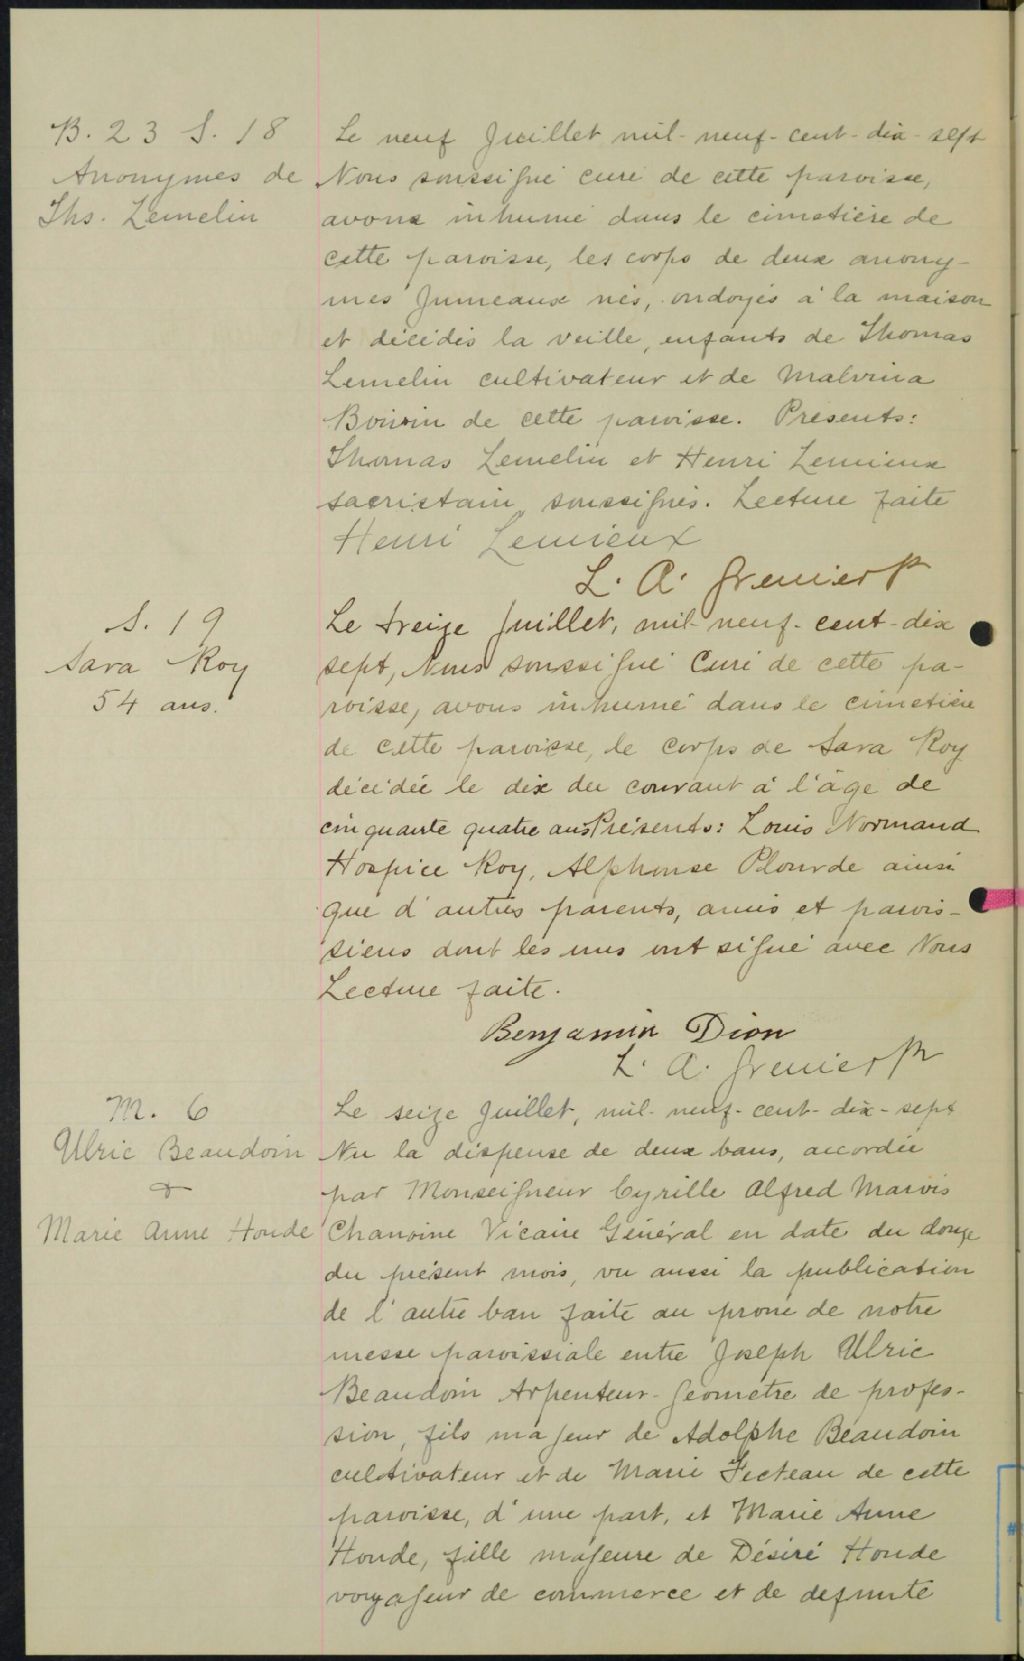 B. 23 S. 18
Anonymes de
Ths. Lemelin
Le neuf Juillet mil-neuf-cent-dix-sept
Nous soussigné curé de cette paroisse,
avons inhumé dans le cimetière de
cette paroisse, les corps de deux anony-
mes Jumeaux nés, ondoyés à la maison
et décédés la veille, enfants de Thomas
Lemelin cultivateur et de Malvina
Boivin de cette paroisse. Présents:
Thomas Lemelin et Henri Lemieux
sacristain soussignés. Lecture faite
Henri Lemieux
L. A. Grenier ptr
S. 19
Sara Roy
54 ans.
Le treize Juillet, mil-neuf-cent-dix
sept, Nous soussigné Curé de cette pa-
roisse, avons inhumé dans le cimetière
de cette paroisse, le corps de Sara Roy
décédée le dix du courant à l'âge de
cinquante quatre ans Présents: Louis Normand
Hospice Roy, Alphonse Plourde ainsi
que d'autres parents, amis et parois-
siens dont les uns ont signé avec Nous
Lecture faite.
Benjamin Dion
L. A. Grenier ptr
M. 6
Ulric Beaudoin
&
Marie Anne Houde
Le seize Juillet, mil-neuf-cent-dix-sept
Vu la dispense de deux bans, accordée
par Monseigneur Cyrille Alfred Marois
Chanoine Vicaire Général en date du douze
du présent mois, vu aussi la publication
de l'autre ban faite au prône de notre
messe paroissiale entre Joseph Ulric
Beaudoin Arpenteur-Géomètre de profes-
sion, fils majeur de Adolphe Beaudoin
cultivateur et de Marie Fecteau de cette
paroisse, d'une part, et Marie Anne
Houde, fille majeure de Désiré Houde
voyageur de commerce et de defunte